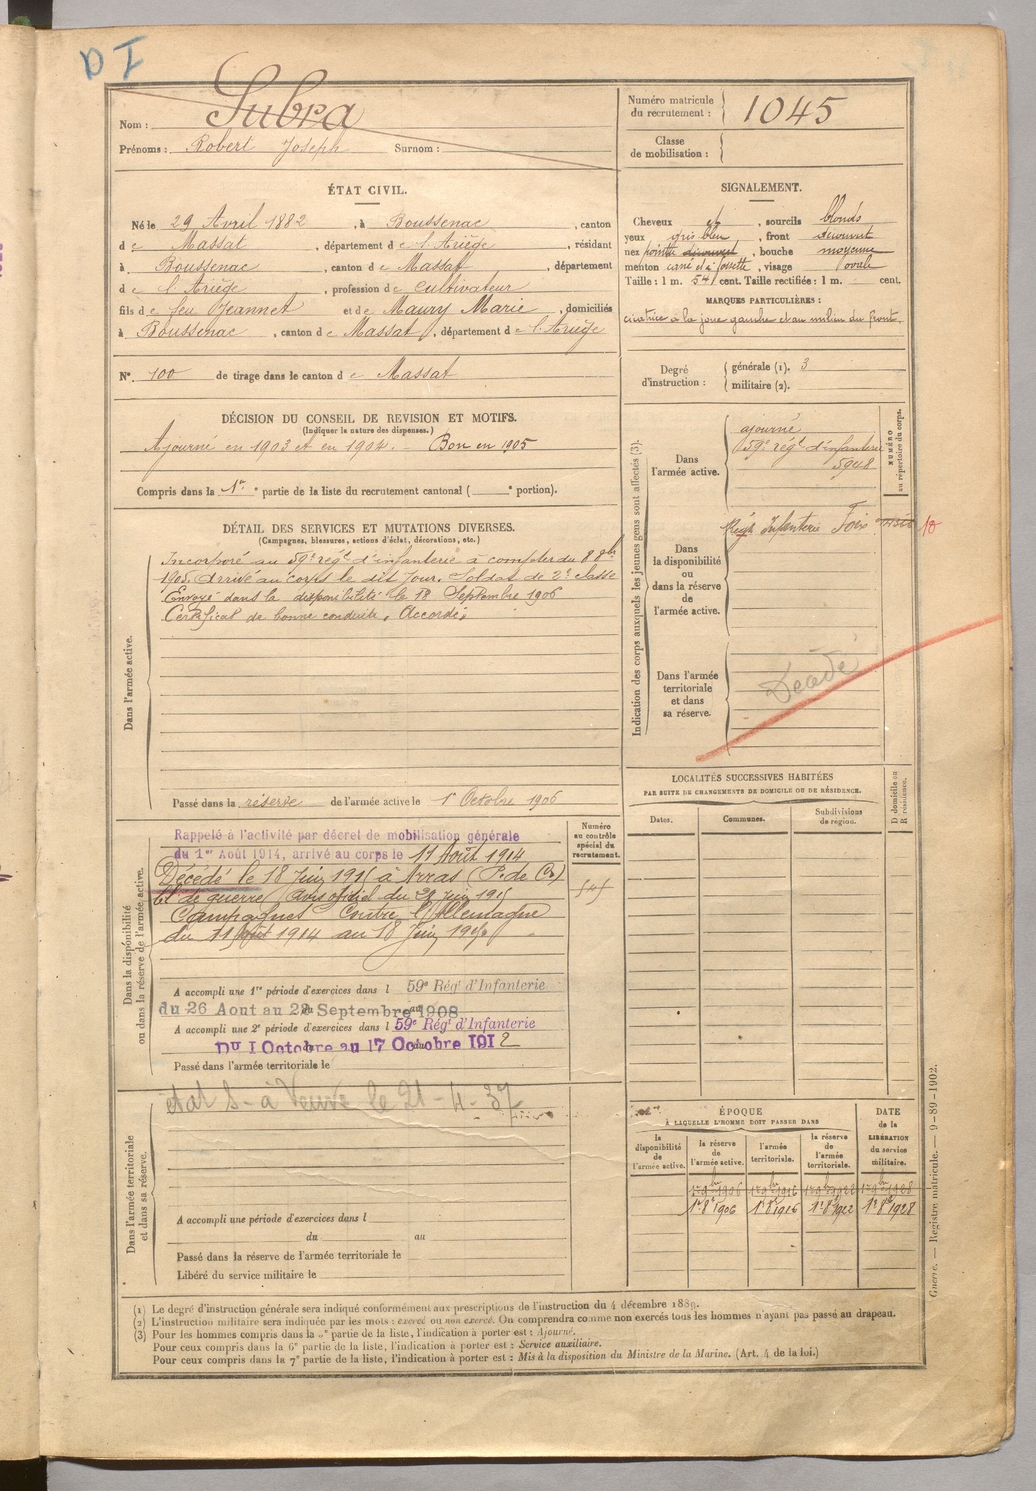 D I
Nom : Subra
Prénoms : Robert Joseph Surnom :
Numéro matricule du recrutement : 1045
Classe de mobilisation :
ÉTAT CIVIL.
Né le 29 Avril 1882, à Boussenac, canton
de Massat, département de l'Ariège, résidant
à Boussenac, canton de Massat, département
de l'Ariège, profession de Cultivateur
fils de feu Jeannet et de Maury Marie, domiciliés
à Boussenac, canton de Massat, département de l'Ariège
N°. 100 de tirage dans le canton de Massat
SIGNALEMENT.
Cheveux et, sourcils blonds
yeux gris bleu, front découvert
nez pointu découvert, bouche moyenne
menton carré et à fossette, visage ovale
Taille : 1 m. 541 cent. Taille rectifiée : 1 m. cent.
MARQUES PARTICULIÈRES :
cicatrice à la joue gauche et au milieu du front
Degré d'instruction : générale (1). 3
militaire (2).
DÉCISION DU CONSEIL DE REVISION ET MOTIFS.
(Indiquer la nature des dispenses.)
Ajourné en 1903 et en 1904. Bon en 1905
Compris dans la 1re partie de la liste du recrutement cantonal ( e portion).
DÉTAIL DES SERVICES ET MUTATIONS DIVERSES.
(Campagnes, blessures, actions d'éclat, décorations, etc.)
Dans l'armée active.
Incorporé au 59e régt d'infanterie à compter du 8 8bre
1905. Arrivé au corps le dit jour. Soldat de 2e classe
Envoyé dans la disponibilité le 18 Septembre 1906
Certificat de bonne conduite, Accordé.
Passé dans la réserve de l'armée active le 1r Octobre 1906
Indication des corps auxquels les jeunes gens sont affectés (3).
NUMÉRO au répertoire du corps.
Dans l'armée active.
ajourné
59e régt d'infanterie
5948
Dans la disponibilité ou dans la réserve de l'armée active.
Régt Infanterie Foix
Dans l'armée territoriale et dans sa réserve.
Décédé
LOCALITÉS SUCCESSIVES HABITÉES
PAR SUITE DE CHANGEMENTS DE DOMICILE OU DE RÉSIDENCE.
D domicile ou R résidence.
Dates. Communes. Subdivisions de région.
Dans la disponibilité ou dans la réserve de l'armée active.
Numéro au contrôle spécial du recrutement.
Rappelé à l'activité par décret de mobilisation générale
du 1er Août 1914, arrivé au corps le 11 Août 1914
Décédé le 18 Juin 1915 à Arras (P. de Cs)
bl de guerre, Avis officiel du 29 juin 1915
Campagnes Contre l'Allemagne
du 11 Août 1914 au 18 Juin 1915
A accompli une 1re période d'exercices dans l 59e Régt d'Infanterie
du 26 Aout au 22 Septembre 1908
A accompli une 2e période d'exercices dans l 59e Régt d'Infanterie
Du 1 Octobre au 17 Octobre 1912
Passé dans l'armée territoriale le
Dans l'armée territoriale et dans sa réserve.
état S - à Veuve le 21-4-37
A accompli une période d'exercices dans l
du au
Passé dans la réserve de l'armée territoriale le
Libéré du service militaire le
ÉPOQUE
À LAQUELLE L'HOMME DOIT PASSER DANS
la disponibilité de l'armée active.
la réserve de l'armée active.
l'armée territoriale.
la réserve de l'armée territoriale.
DATE de la LIBÉRATION du service militaire.
1r 8bre 1906 1r 8bre 1916 1r 8bre 1922 1r 8bre 1928
Guerre. — Registre matricule. — 9-89-1902.
(1) Le degré d'instruction générale sera indiqué conformément aux prescriptions de l'instruction du 4 décembre 1889.
(2) L'instruction militaire sera indiquée par les mots : exercé ou non exercé. On comprendra comme non exercés tous les hommes n'ayant pas passé au drapeau.
(3) Pour les hommes compris dans la 2e partie de la liste, l'indication à porter est : Ajourné.
Pour ceux compris dans la 6e partie de la liste, l'indication à porter est : Service auxiliaire.
Pour ceux compris dans la 7e partie de la liste, l'indication à porter est : Mis à la disposition du Ministre de la Marine. (Art. 4 de la loi.)